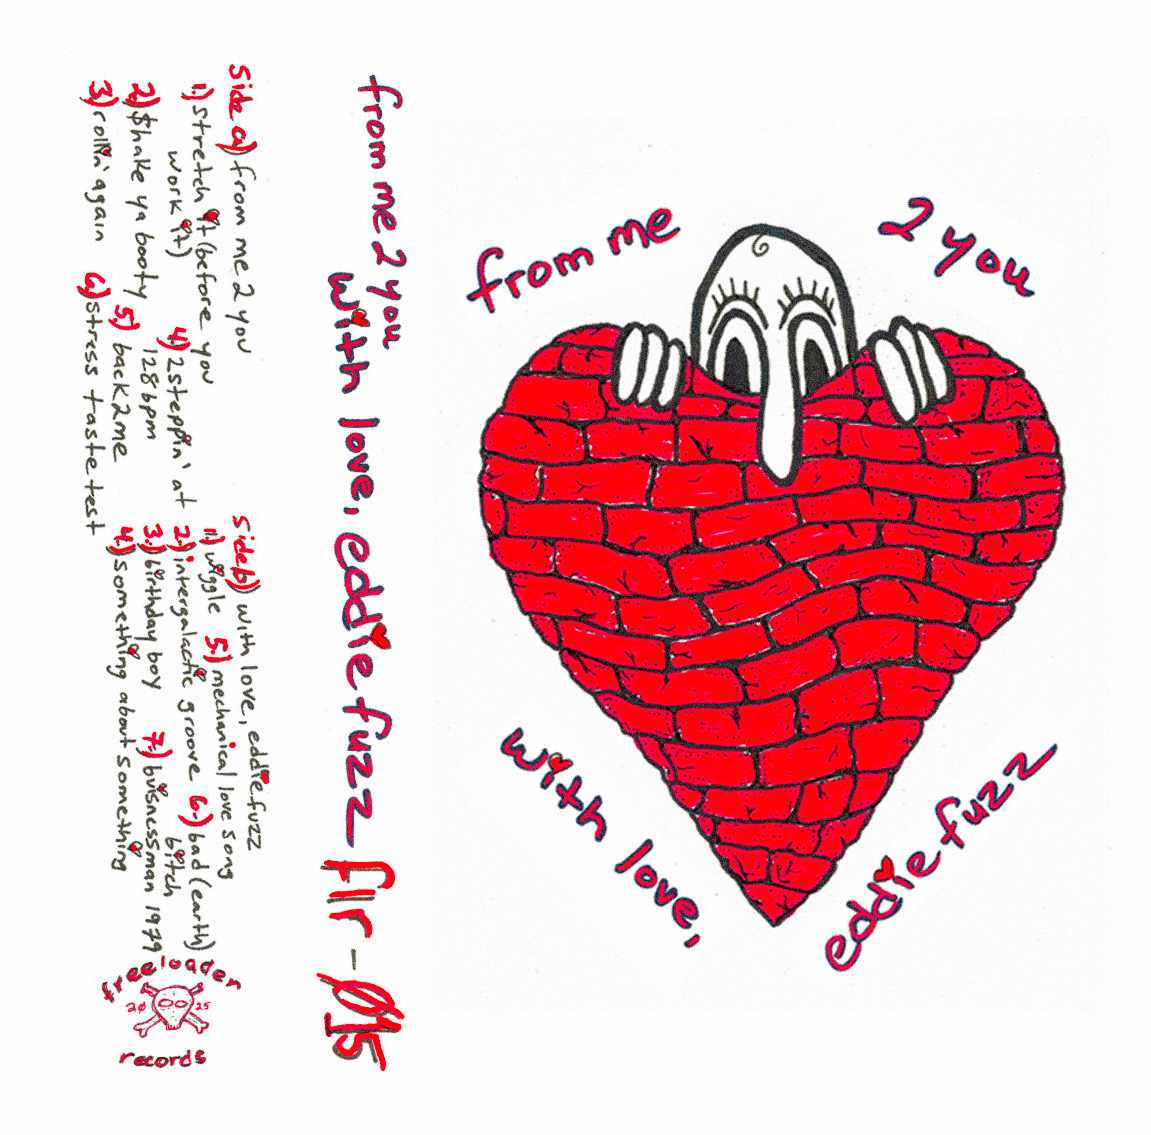 side a) from me 2 you
1.) stretch it (before you
work it)
2) $hake ya booty
3) rollin' again
4.) 2 steppin' at
128 bpm
5.) back 2 me
6.) stress taste test
side b) with love, eddie fuzz
1.) wiggle
2.) intergalactic groove
3.) birthday boy
4.) something about something
5.) mechanical love song
6.) bad (earth)
bitch
7.) buisnessman 1979
freeloader
20 25
records
from me 2 you
with love, eddie fuzz
flr-015
from me 2 you
with love, eddie fuzz